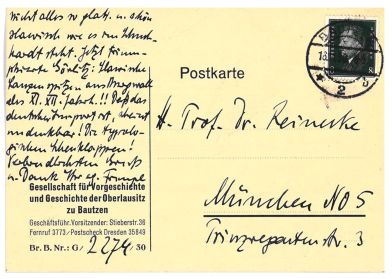 nicht alles so glatt u. schön
slawisch wie es im
steht. Jetzt
Görlitz: slawische
Lanzenspitzen aus
des XI. XII. Jahrh.!! Daß das
deutscher Import ist, scheint
undenkbar! Die typolo-
gischen
Verbindlichsten Gruß
u. Dank Ihr erg. Frenzel
Gesellschaft für Vorgeschichte
und Geschichte der Oberlausitz
zu Bautzen
Geschäftsführ. Vorsitzender: Stieberstr. 36
Fernruf 3773 / Postscheck Dresden 35849
Br. B. Nr.: G/ 2274 / 30
Postkarte
H. Prof. Dr. Reinecke
München NO 5
Prinzregentenstr. 3